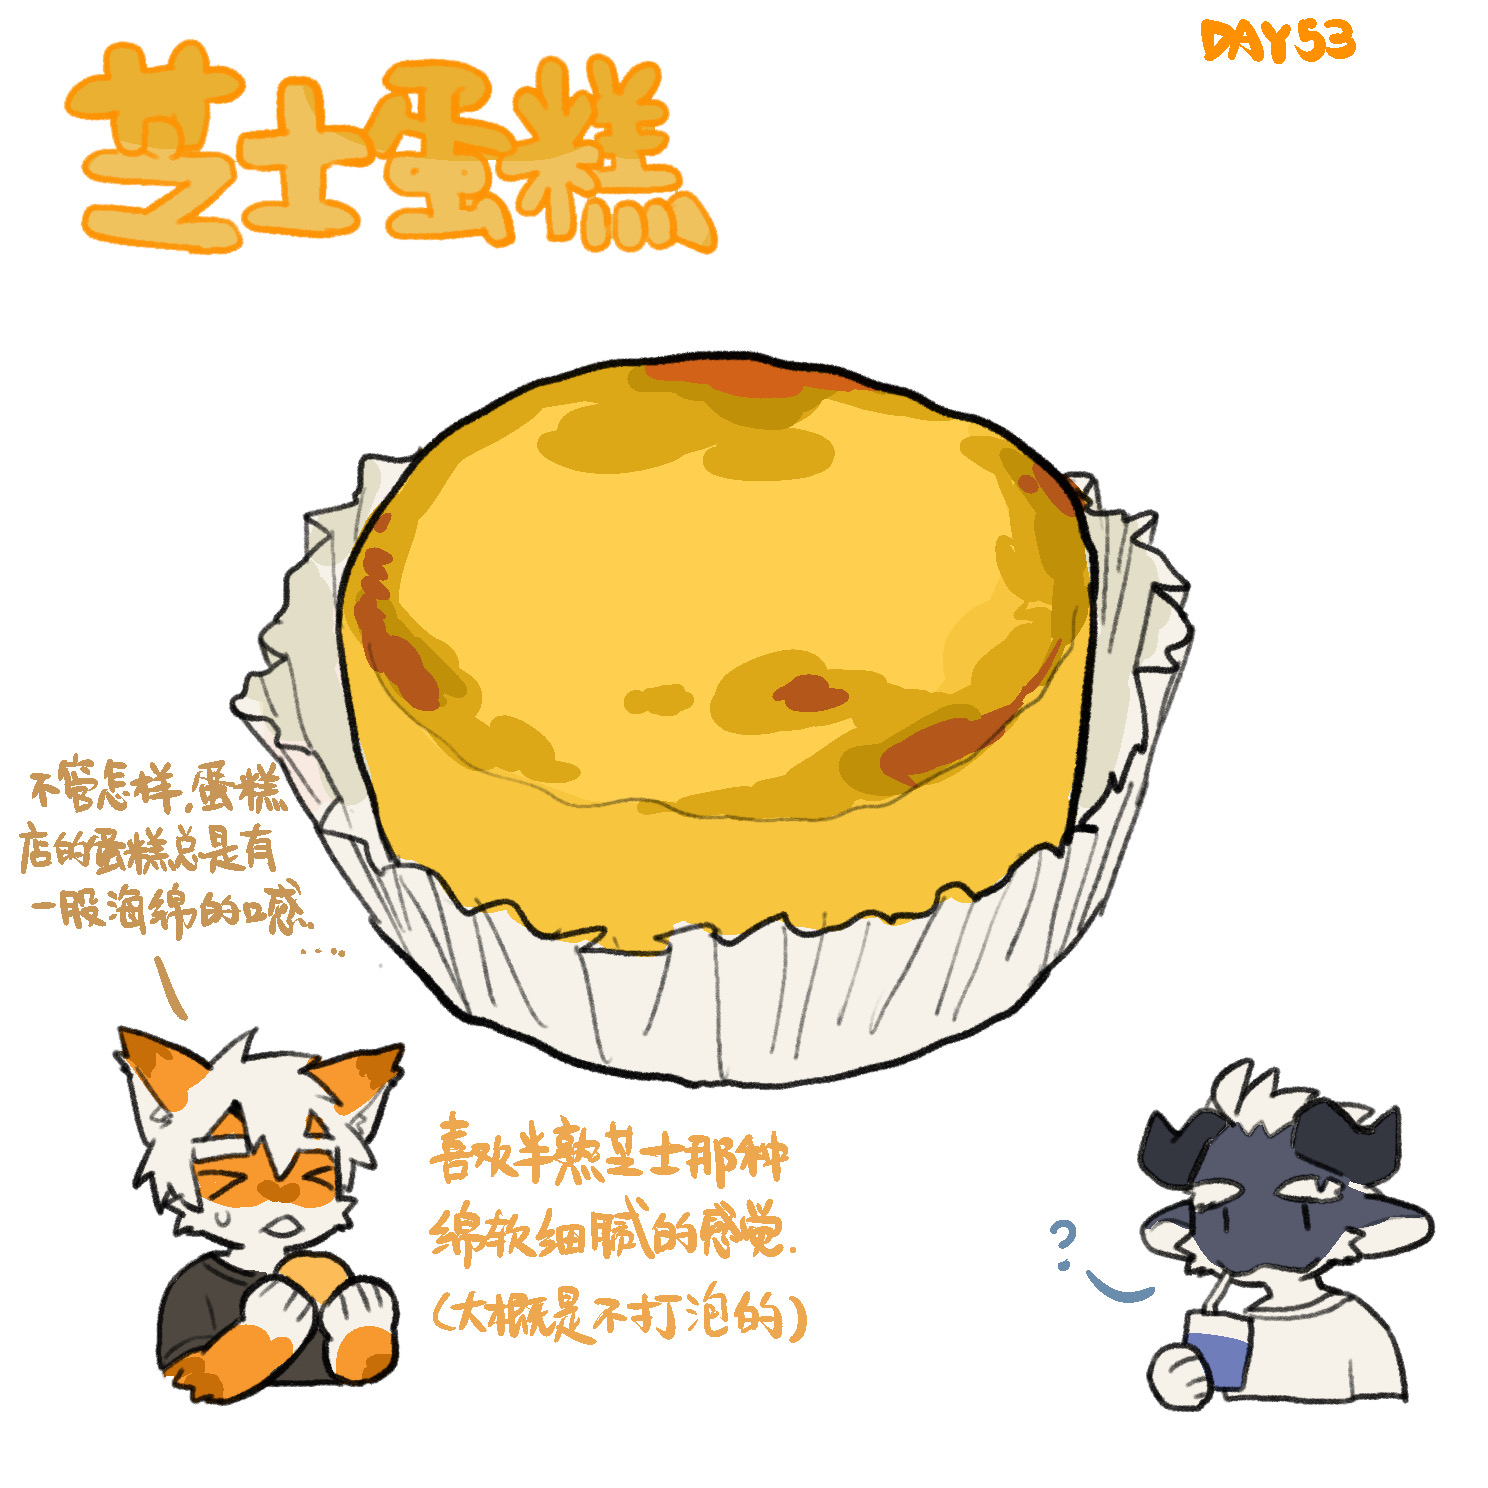 DAY53
芝士蛋糕
不管怎样,蛋糕
店的蛋糕总是有
一股海绵的口感.
.....
喜欢半熟芝士那种
绵软细腻的感觉.
(大概是不打泡的)
?